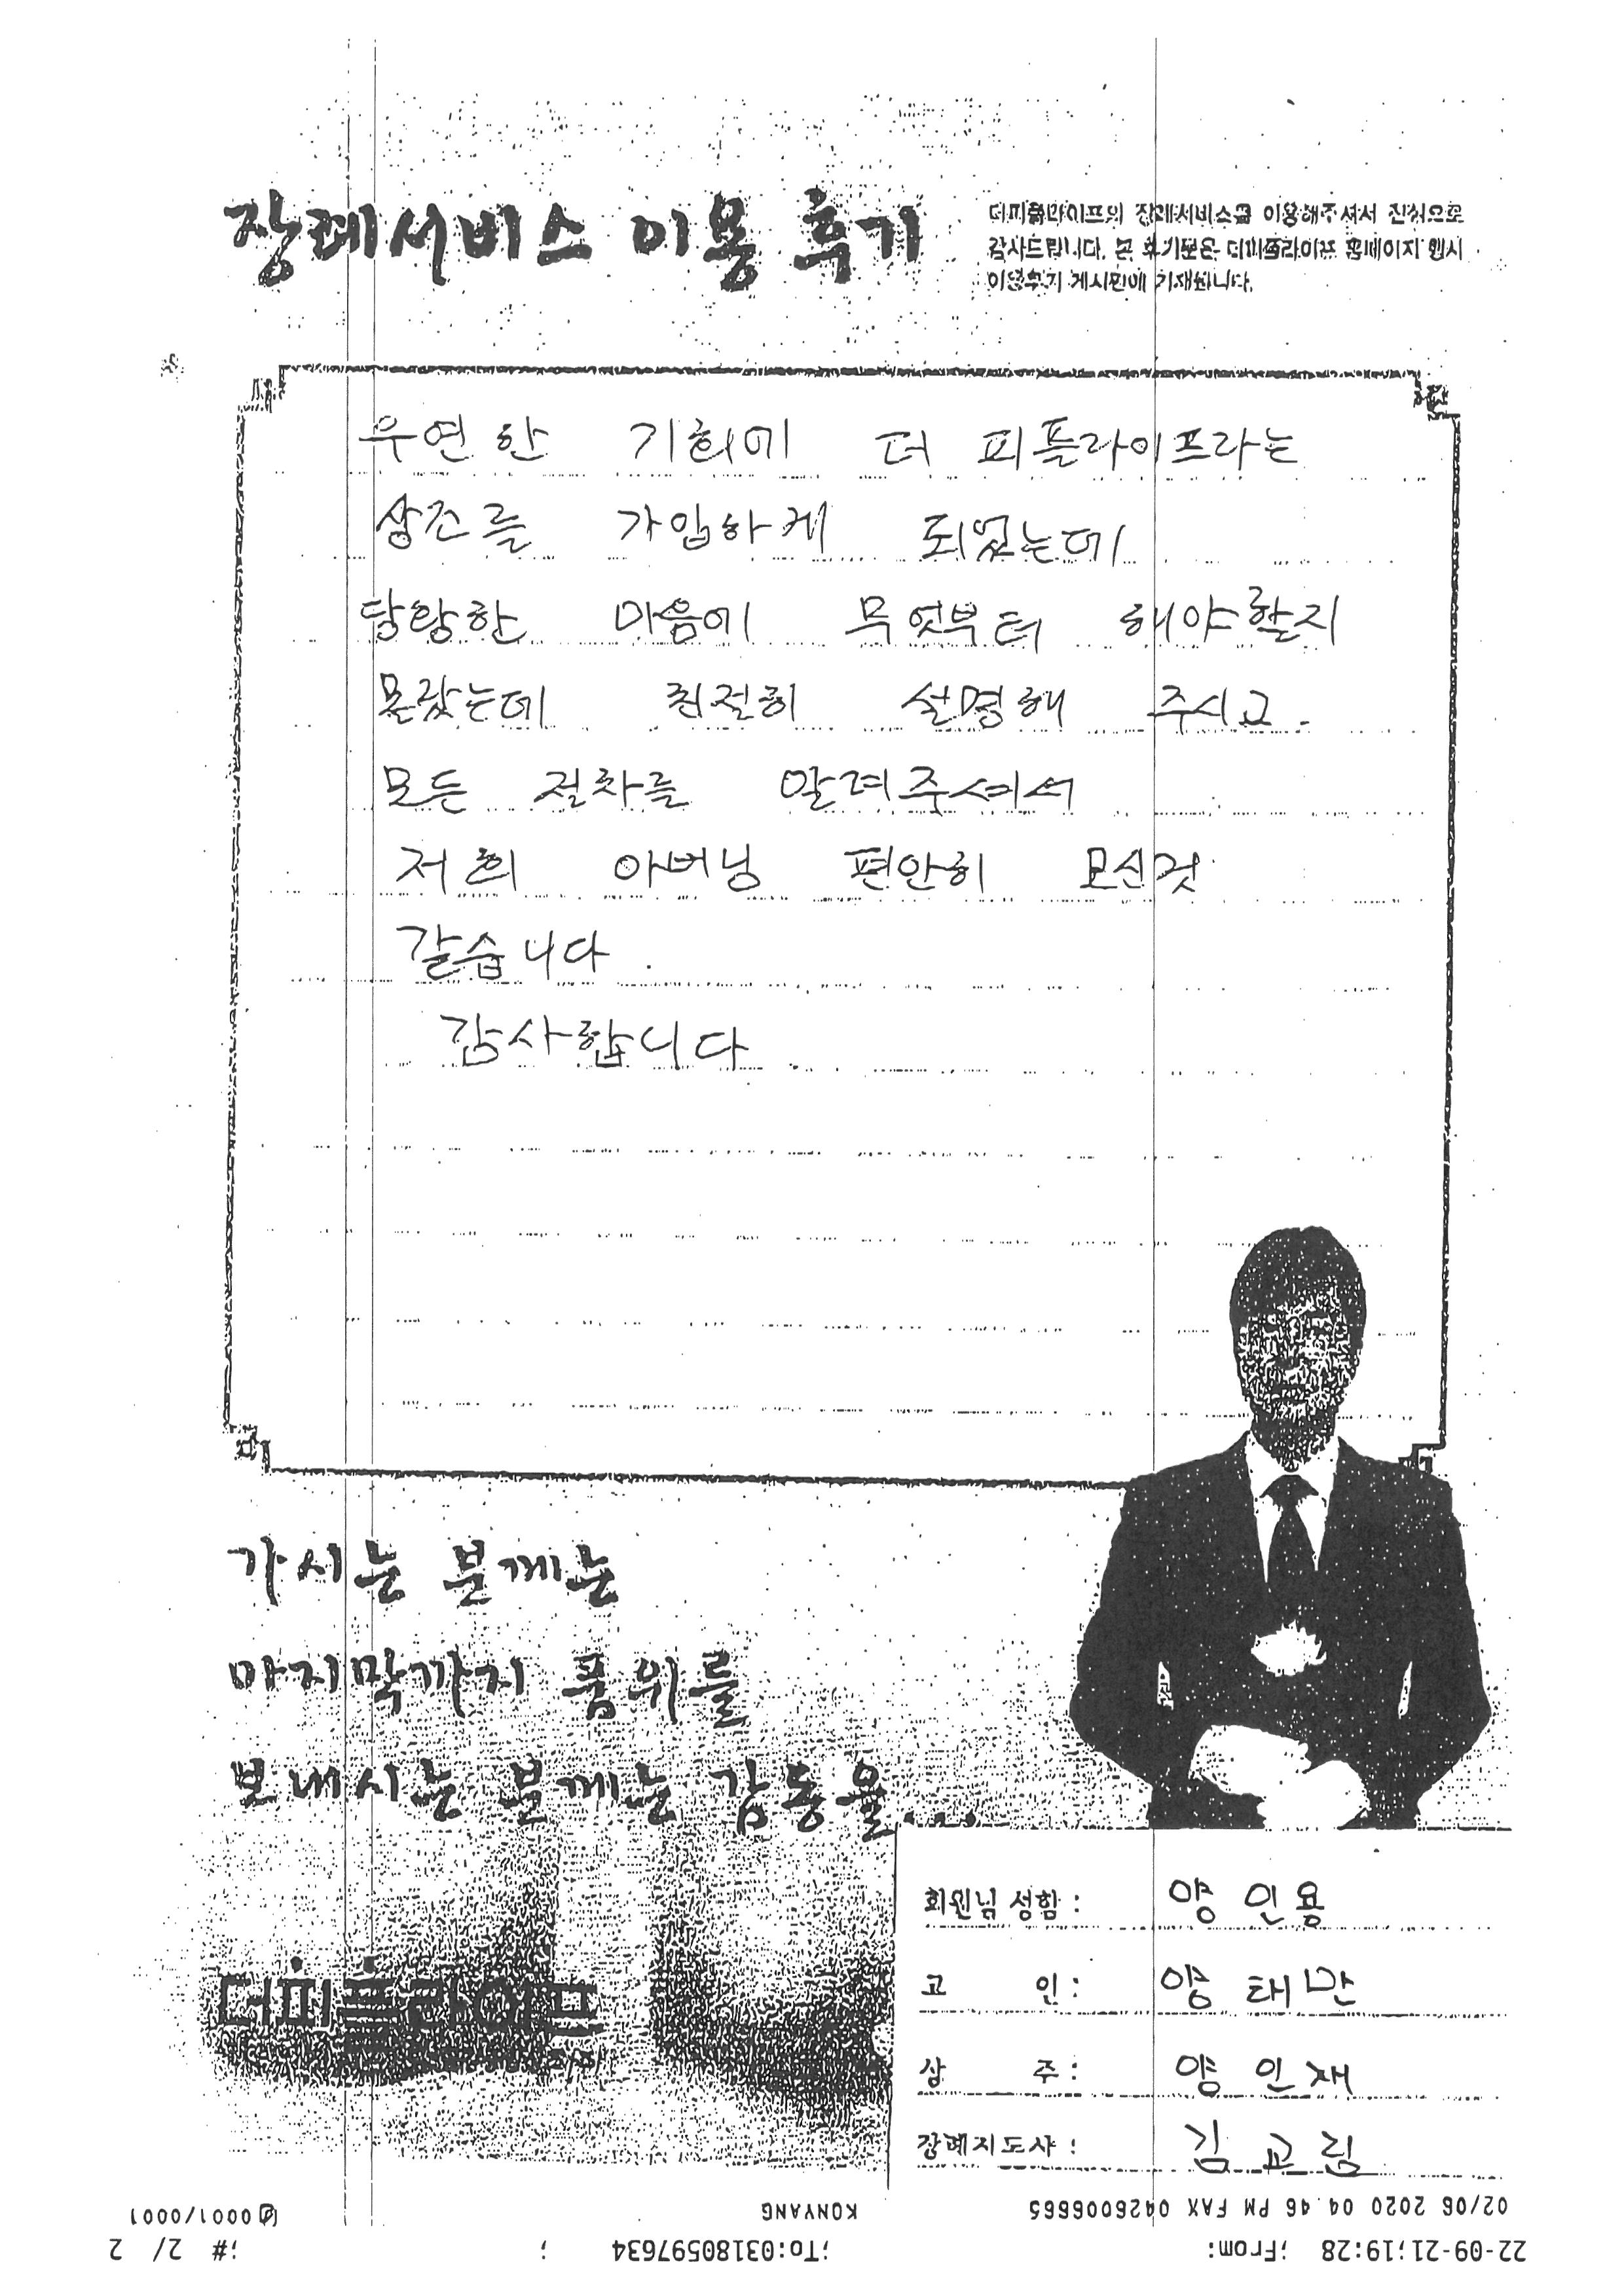 장례서비스 이용 후기
더피플라이프의 장례서비스를 이용해주셔서 진심으로
감사드립니다. 본 후기문은 더피플라이프 홈페이지 행사
이용후기 게시판에 기재됩니다.
우연한 기회에 더 피플라이프라는
상조를 가입하게 되었는데
당황한 마음에 무엇부터 해야할지
몰랐는데 친절히 설명해 주시고.
모든 절차를 알려주셔서
저희 아버님 편안히 모신것
같습니다.
감사합니다
가시는 분께는
마지막까지 품위를
보내시는 분께는 감동을...
더피플라이프
회원님 성함 : 양인용
고 인 : 양태만
상 주 : 양인재
장례지도사 : 김교림
02/06 2020 04:46 PM FAX 0426006665 KONYANG 0001/0001
22-09-21;19:28 ;From: ;To:03180597634 ; ;# 2/ 2